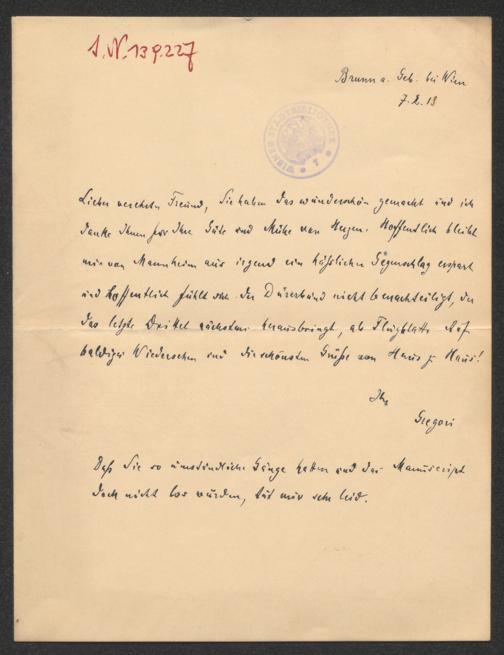 I.N. 139.227
Brunn a. Geb. bei Wien
7.2.13
WIENER STADTBIBLIOTHEK
Lieber verehrter Freund, Sie haben das wunderschön gemacht und ich
danke Ihnen für Ihre Güte und Mühe von Herzen. Hoffentlich bleibt
mir von Mannheim aus irgend ein hässlicher Gegenschlag erspart
und hoffentlich fühlt sich der Dürerbund nicht benachteiligt, der
das letzte Drittel nächstens herausbringt, als Flugblatt. Auf
baldiges Wiedersehen und die schönsten Grüße von Haus zu Haus!
Ihr
Gregori
Daß Sie so umständliche Gänge hatten und das Manuscript
doch nicht los wurden, tut mir sehr leid.